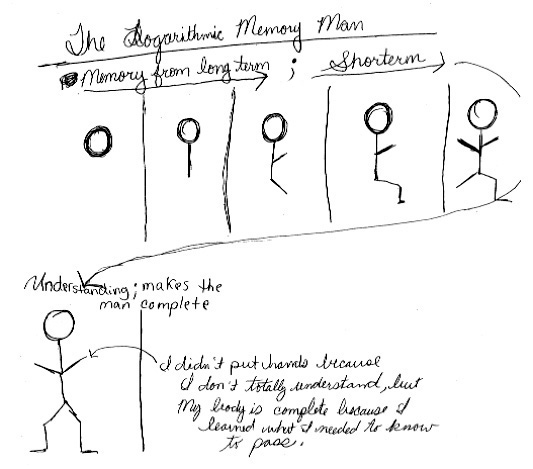 The Logarithmic Memory Man
Memory from long term ; Shorterm
Understanding; makes the
man complete
I didn't put hands because
I don't totally understand, but
My body is complete because I
learned what I needed to know
to pass.